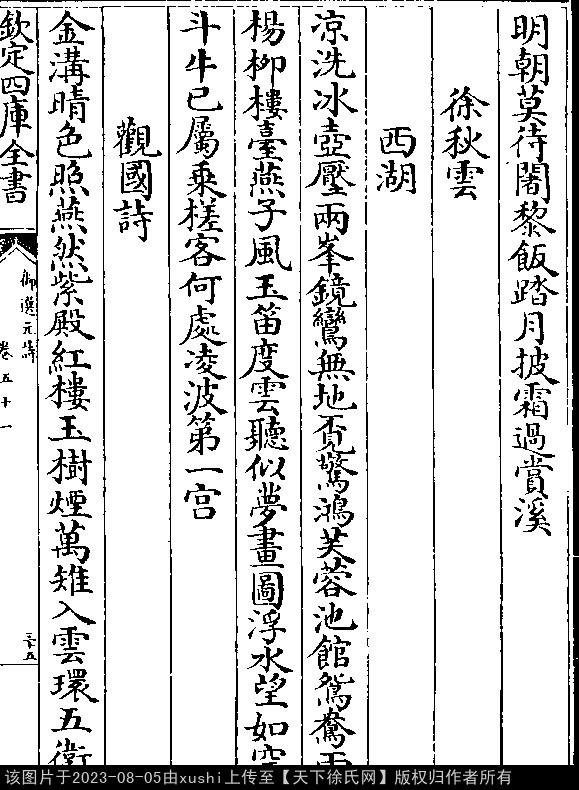 明朝莫待闍黎飯踏月披霜過賞溪
徐秋雲
西湖
凉洗冰壺壓兩峯鏡鸞無地覓驚鴻芙蓉池館鴛鴦雨
楊柳樓臺燕子風玉笛度雲聽似夢畫圖浮水望如空
斗牛已屬乗槎客何處凌波第一宫
觀國詩
金溝晴色照燕然紫殿紅樓玉樹煙萬雉入雲環五衛
欽定四庫全書
御選元詩
卷五十一
三十五
该图片于2023-08-05由xushi上传至【天下徐氏网】版权归作者所有